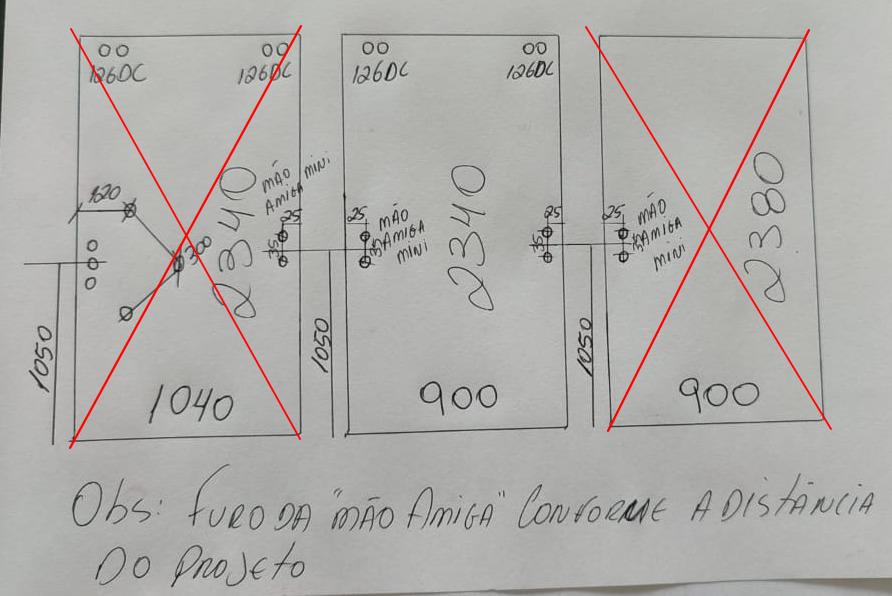 126DC 126DC
126DC 126DC
2340
MÃO
AMIGA MINI
620
300
25
35
1050
1040
25
MÃO
AMIGA
MINI
35
2340
25
35
1050
900
25
MÃO
AMIGA
MINI
35
2380
1050
900
Obs: FURO DA "MÃO AMIGA" CONFORME A DISTÂNCIA
DO PROJETO